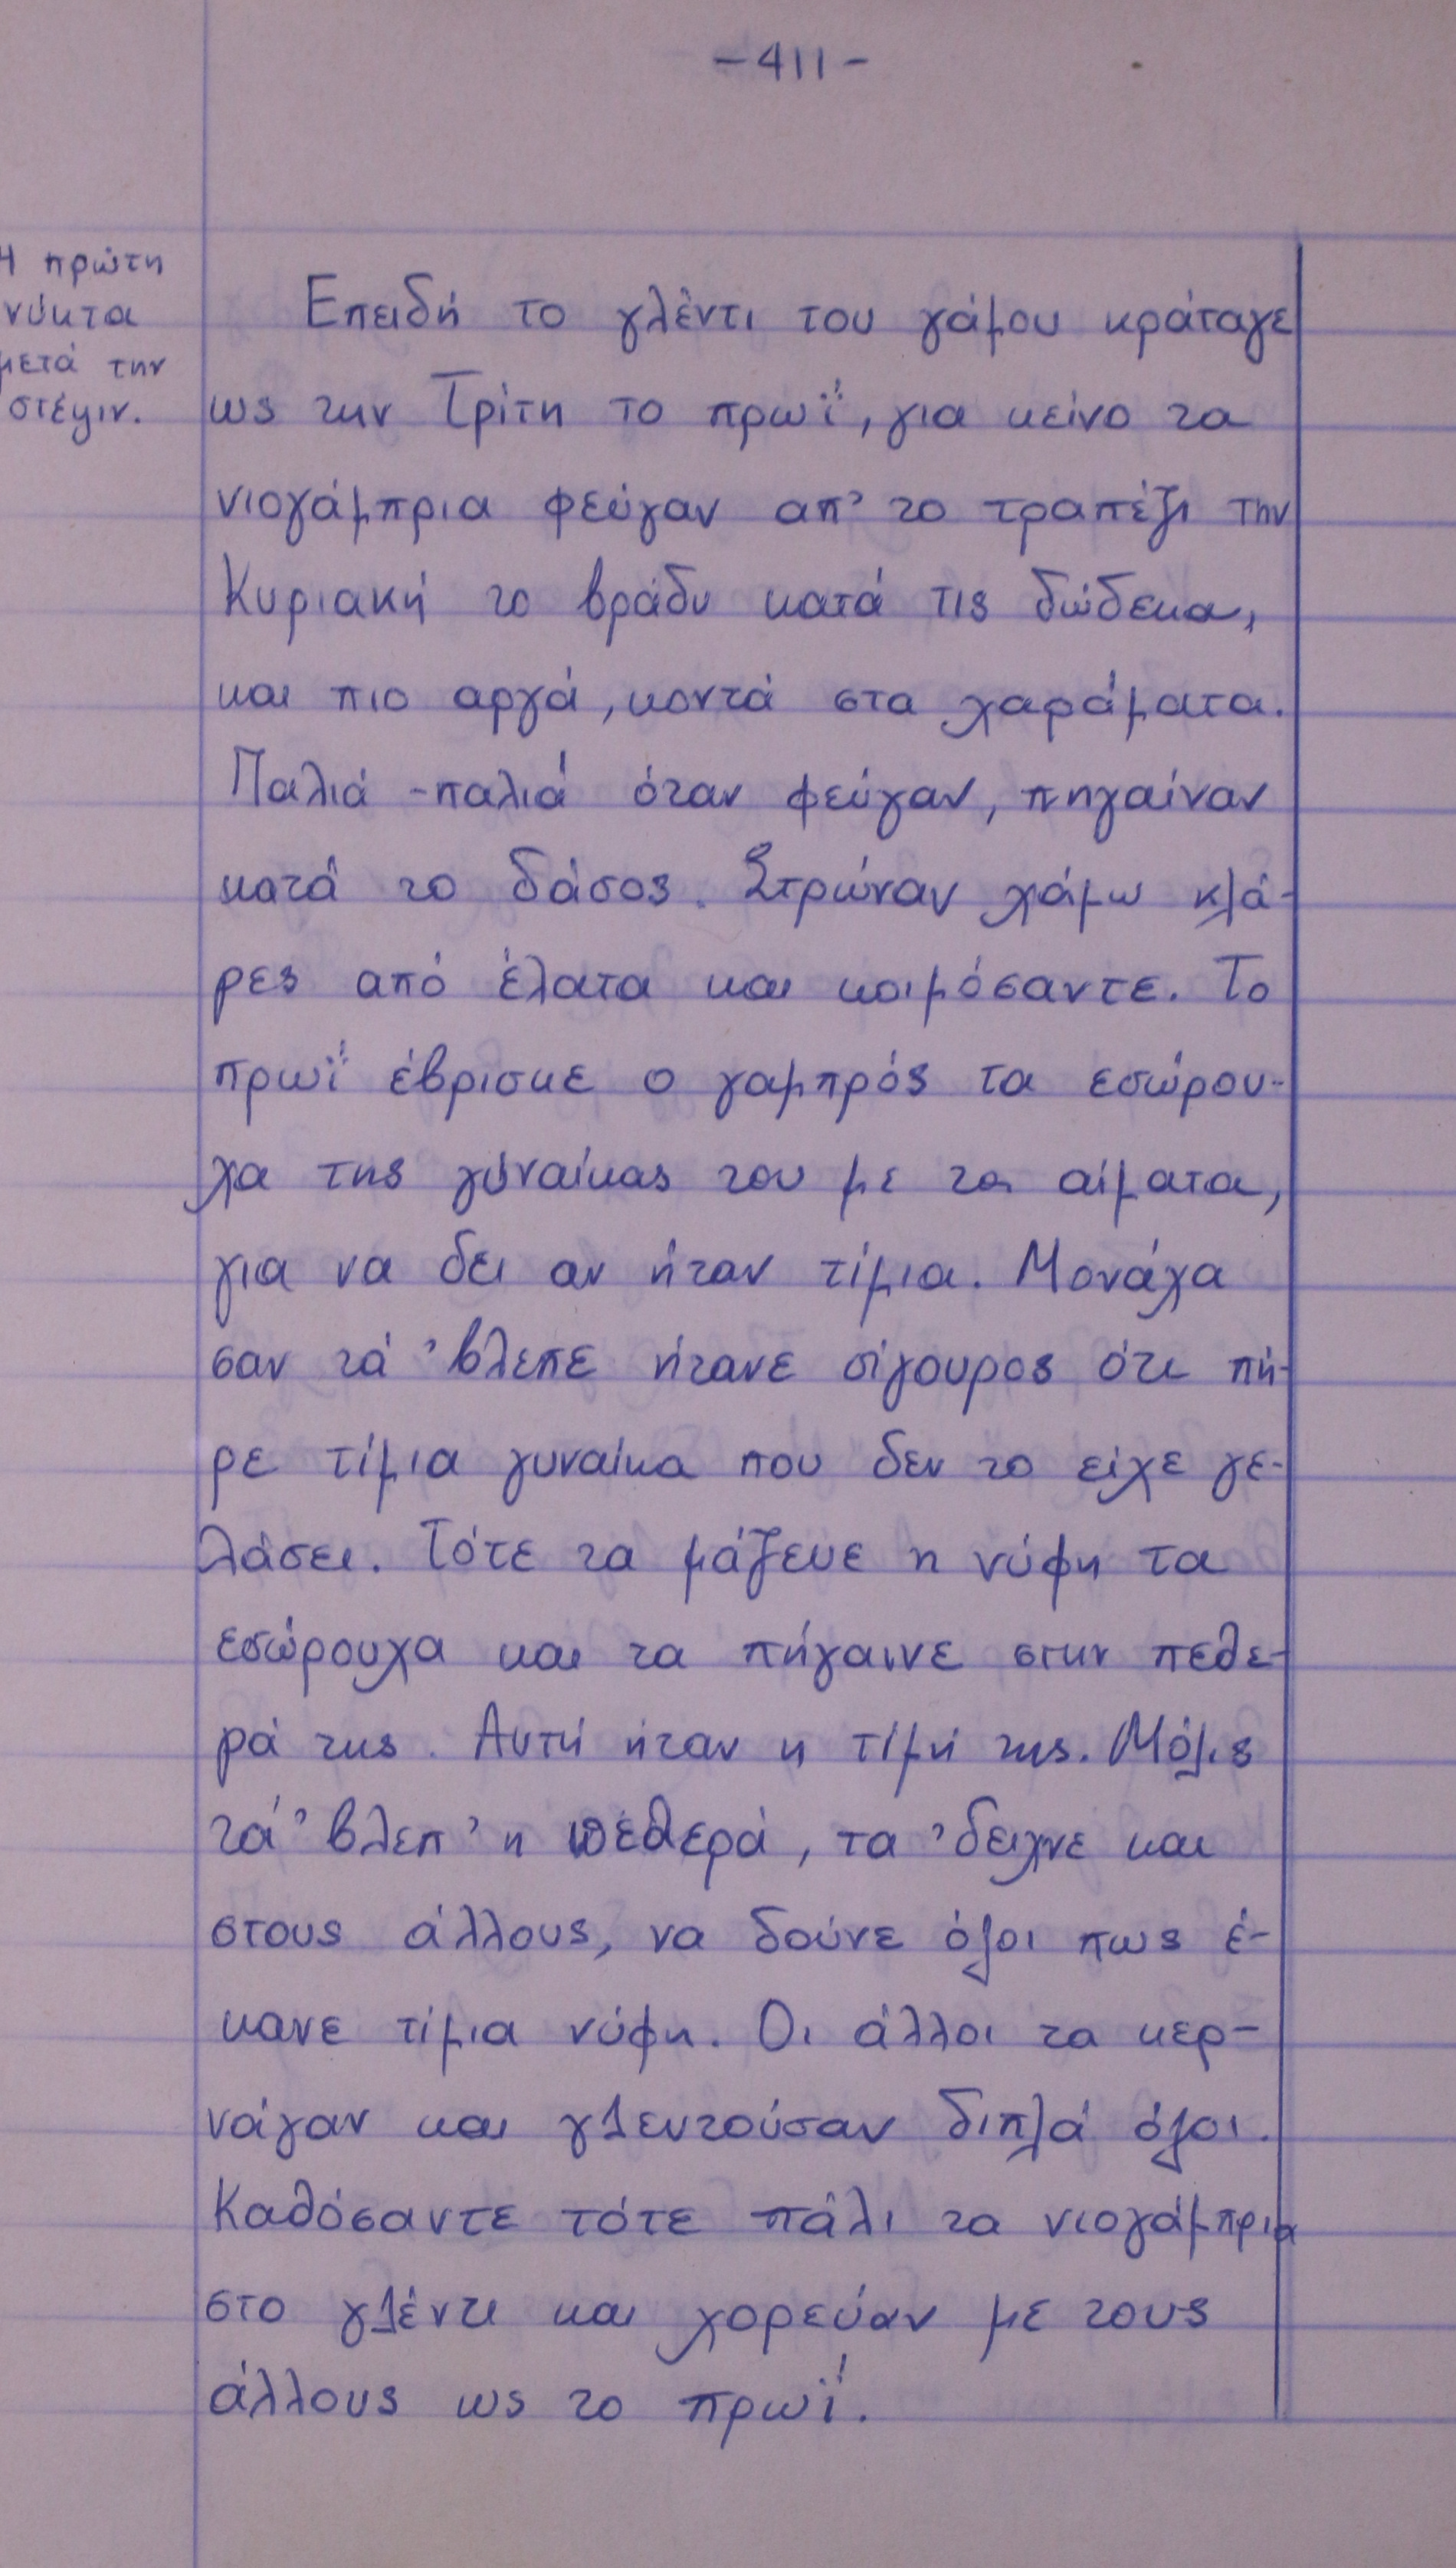 -411-
Η πρώτη
νύκτα
μετά την
στέψιν.
Επειδή το γλέντι του γάμου κράταγε
ως την Τρίτη το πρωΐ, για κείνο τα
νιογάμπρια φεύγαν απ' το τραπέζι την
Κυριακή το βράδυ κατά τις δώδεκα,
και πιο αργά, κοντά στα χαράματα.
Παλιά -παλιά όταν φεύγαν, πηγαίναν
κατά το δάσος. Στρώναν χάμω κλά-
ρες από έλατα και κοιμόσαντε. Το
πρωΐ έβρισκε ο γαμπρός τα εσώρου-
χα της γυναίκας του με τα αίματα,
για να δει αν ήταν τίμια. Μονάχα
σαν τά 'βλεπε ήτανε σίγουρος ότι πή-
ρε τίμια γυναίκα που δεν το είχε γε-
λάσει. Τότε τα μάζευε η νύφη τα
εσώρουχα και τα πήγαινε στην πεθε-
ρά της. Αυτή ήταν η τίμή της. Μόλις
τά 'βλεπ' η πεθερά, τα 'δειχνε και
στους άλλους, να δούνε όλοι πως έ-
κανε τίμια νύφη. Οι άλλοι τα κερ-
νάγαν και γλεντούσαν διπλά όλοι.
Καθόσαντε τότε πάλι τα νιογάμπρια
στο γλέντι και χορεύαν με τους
άλλους ως το πρωΐ.